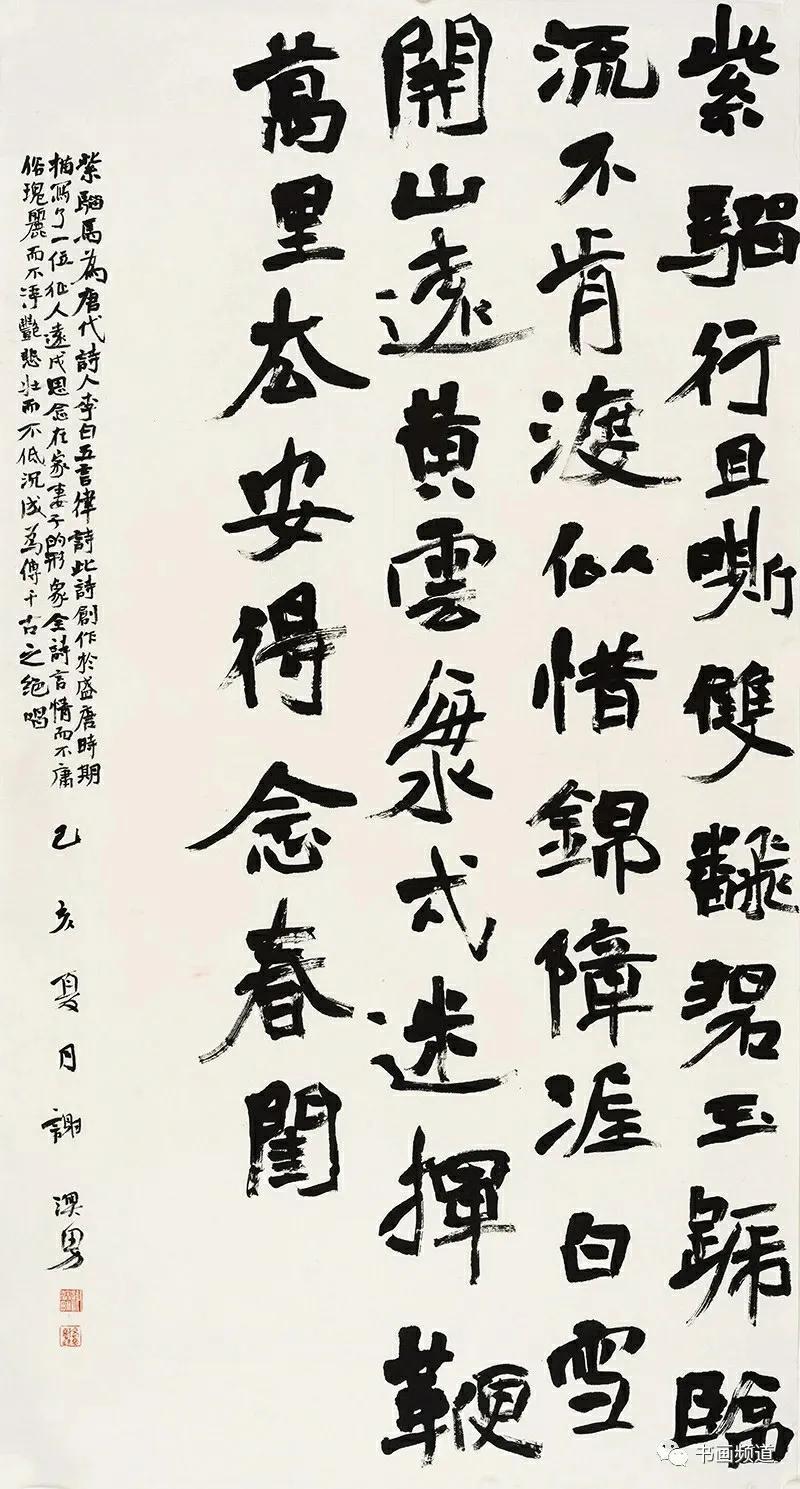 紫騮行且嘶雙飜碧玉蹏臨
流不肯渡似惜錦障涯白雪
開山遠黃雲海戍迷揮鞭
萬里去安得念春閨
紫騮馬為唐代詩人李白五言律詩此詩創作於盛唐時期
描寫了一位征人遠戍思念在家妻子的形象全詩言情而不庸
俗瑰麗而不浮豔悲壯而不低沉成為傳千古之絕唱
己亥夏月謝澳
书画频道